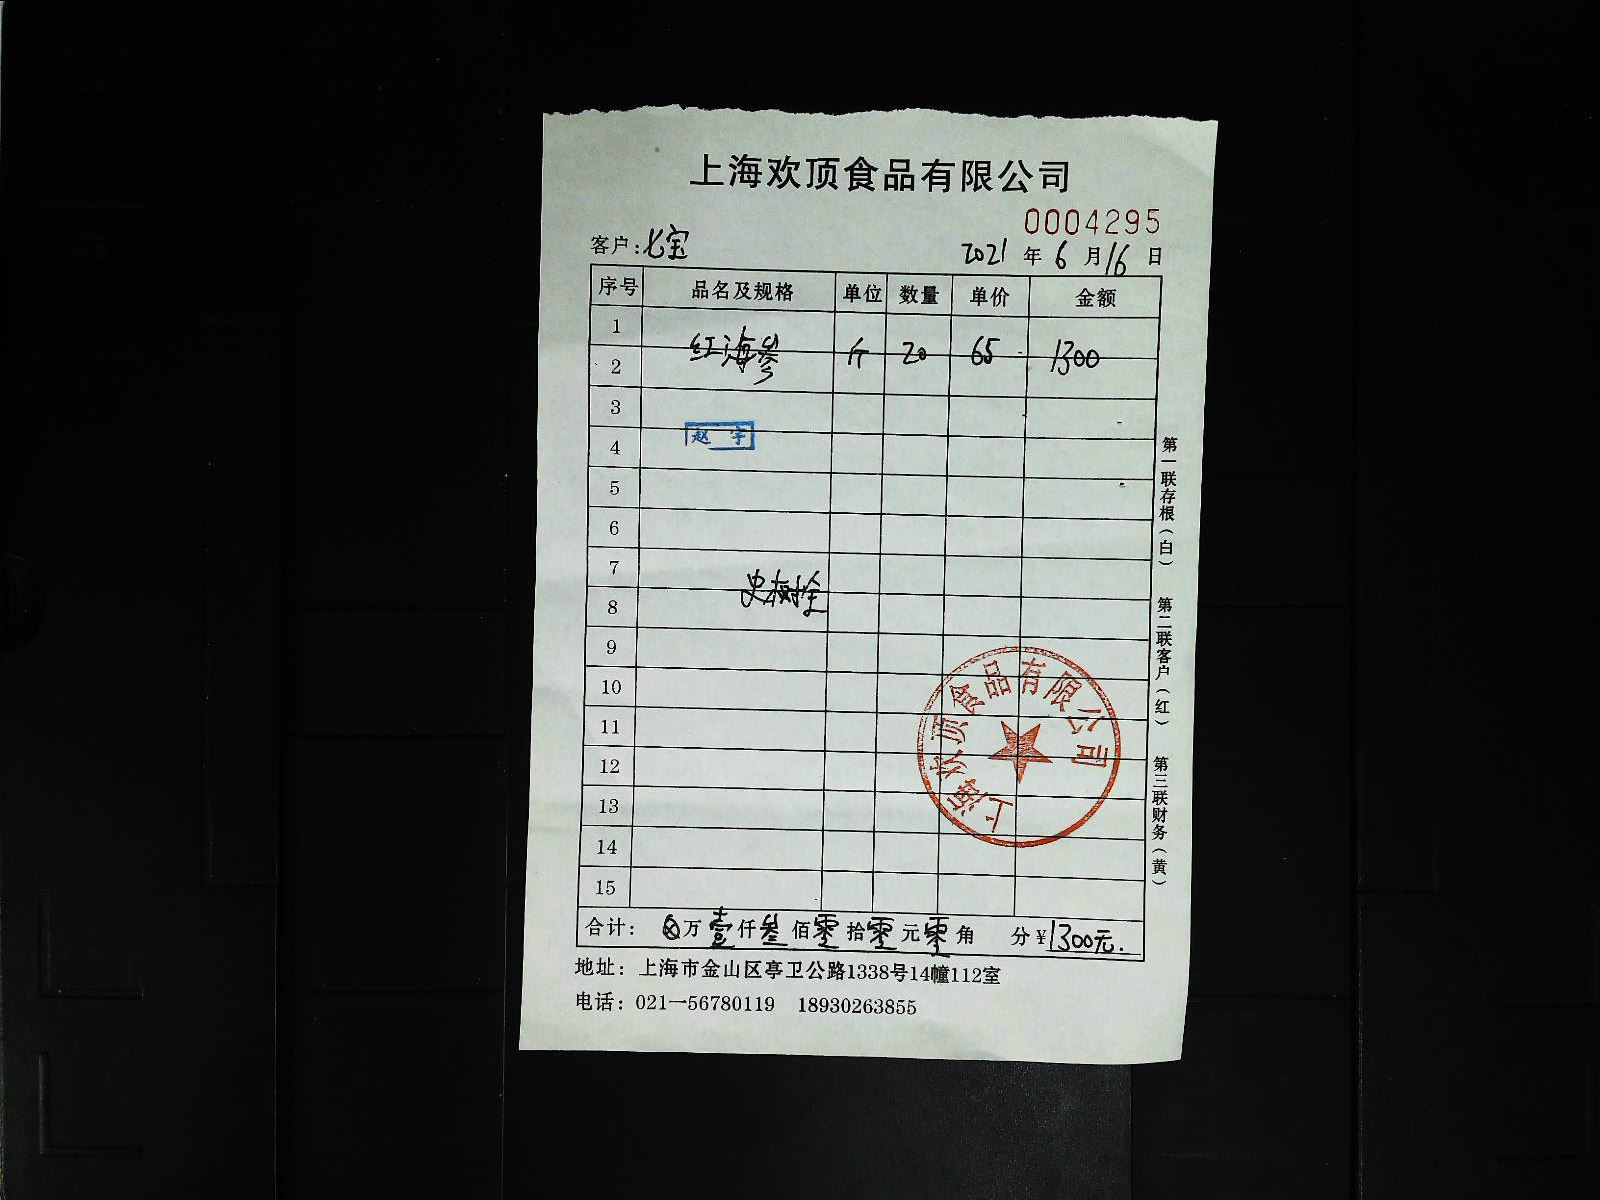 上海欢顶食品有限公司
0004295
客户:七宝 2021年6月16日
序号 品名及规格 单位 数量 单价 金额
1
红海参 斤 20 65 1300
2
3
赵宇
4
5
6
7
史树全
8
9
10
11
12
13
14
15
上海欢顶食品有限公司
合计: 万壹仟叁佰零拾零元零角 分¥1300元.
地址:上海市金山区亭卫公路1338号14幢112室
电话:021—56780119 18930263855
第一联存根(白) 第二联客户(红) 第三联财务(黄)